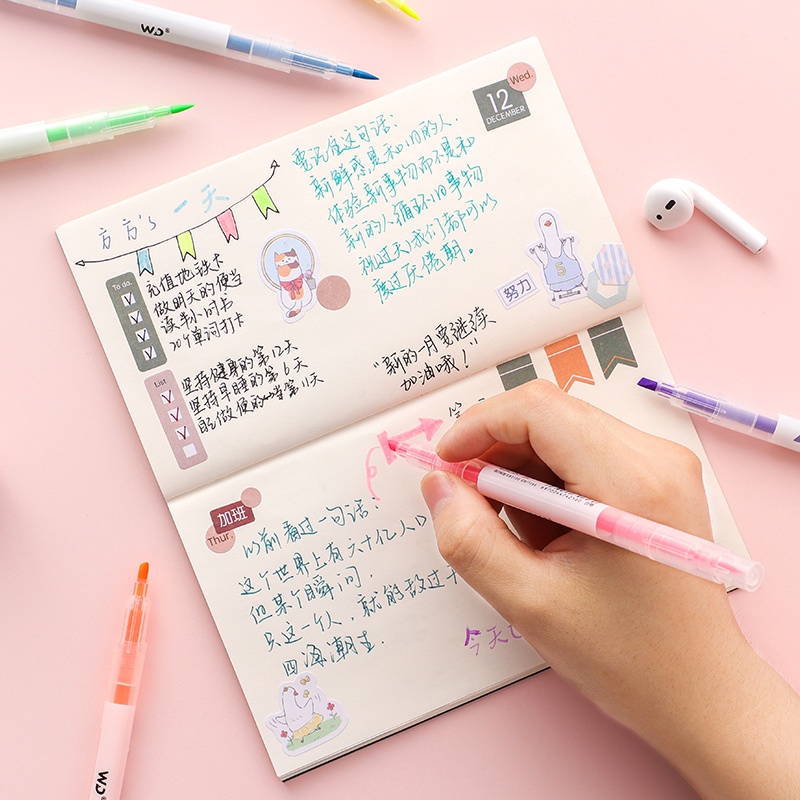 WD®
Wed.
12
DECEMBER
要记住这句话:
新鲜感是和旧的人.
体验新事物而不是和
新的人循环旧事物
祝过天我们都可以
度过厌倦期.
方方's 一天
To do.
充值地铁卡
做明天的便当
读半小时卡
20个单词打卡
努力
List
坚持健身的第12天
坚持早睡的第6天
自己做便当第11天
"新的一月要继续
加油哦!"
加班
Thur.
以前看过一句话:
这个世界上有六十亿人口
但某个瞬间,
只这一个人,就能敌过千
四海潮生.
今天
WD